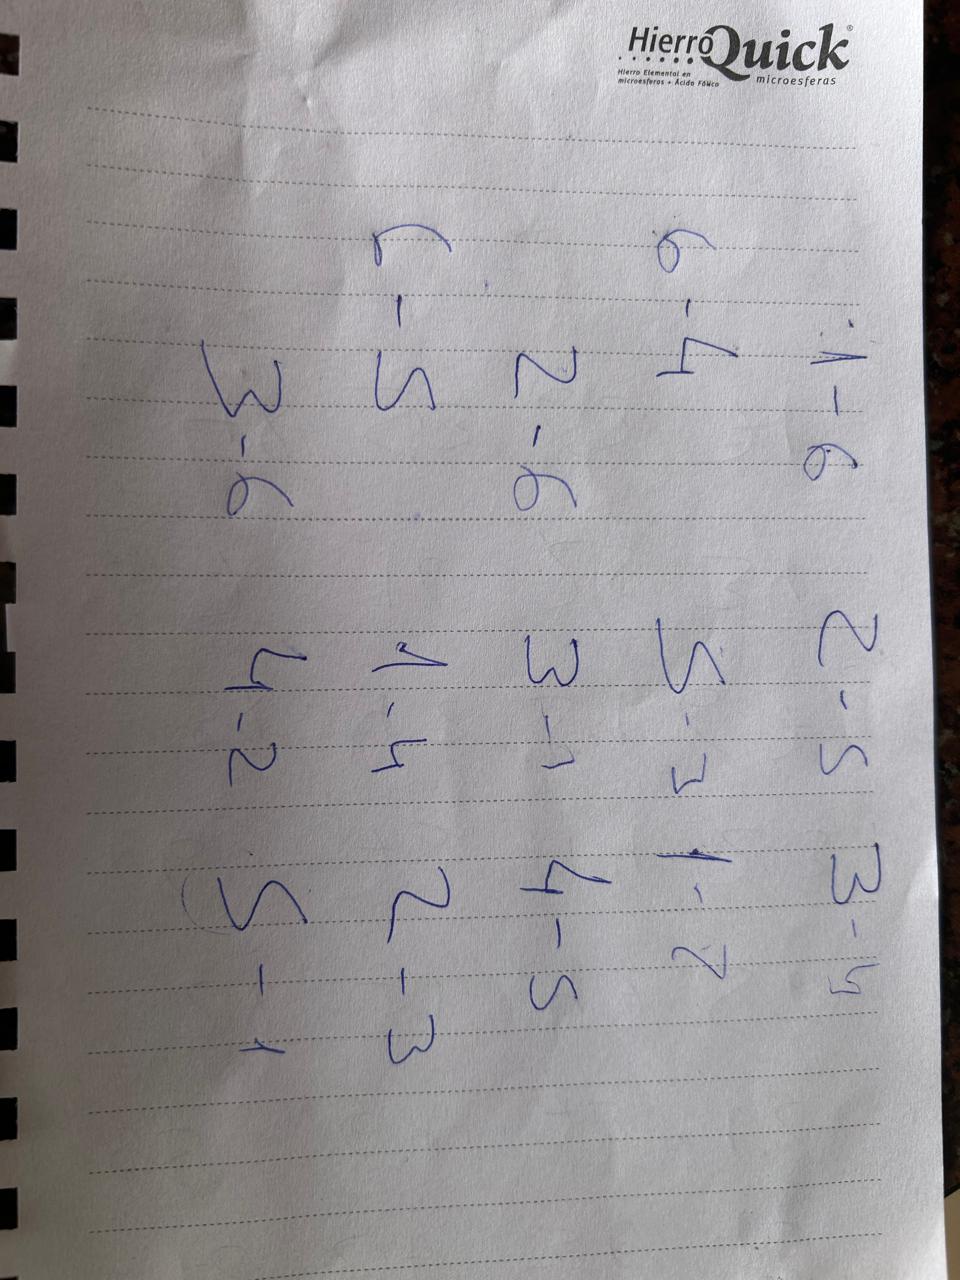 HierroQuick®
Hierro Elemental en
microesferas + Ácido Fólico
microesferas
1-6 2-5 3-4
6-4 5-3 1-2
2-6 3-1 4-5
6-5 1-4 2-3
3-6 4-2 5-1